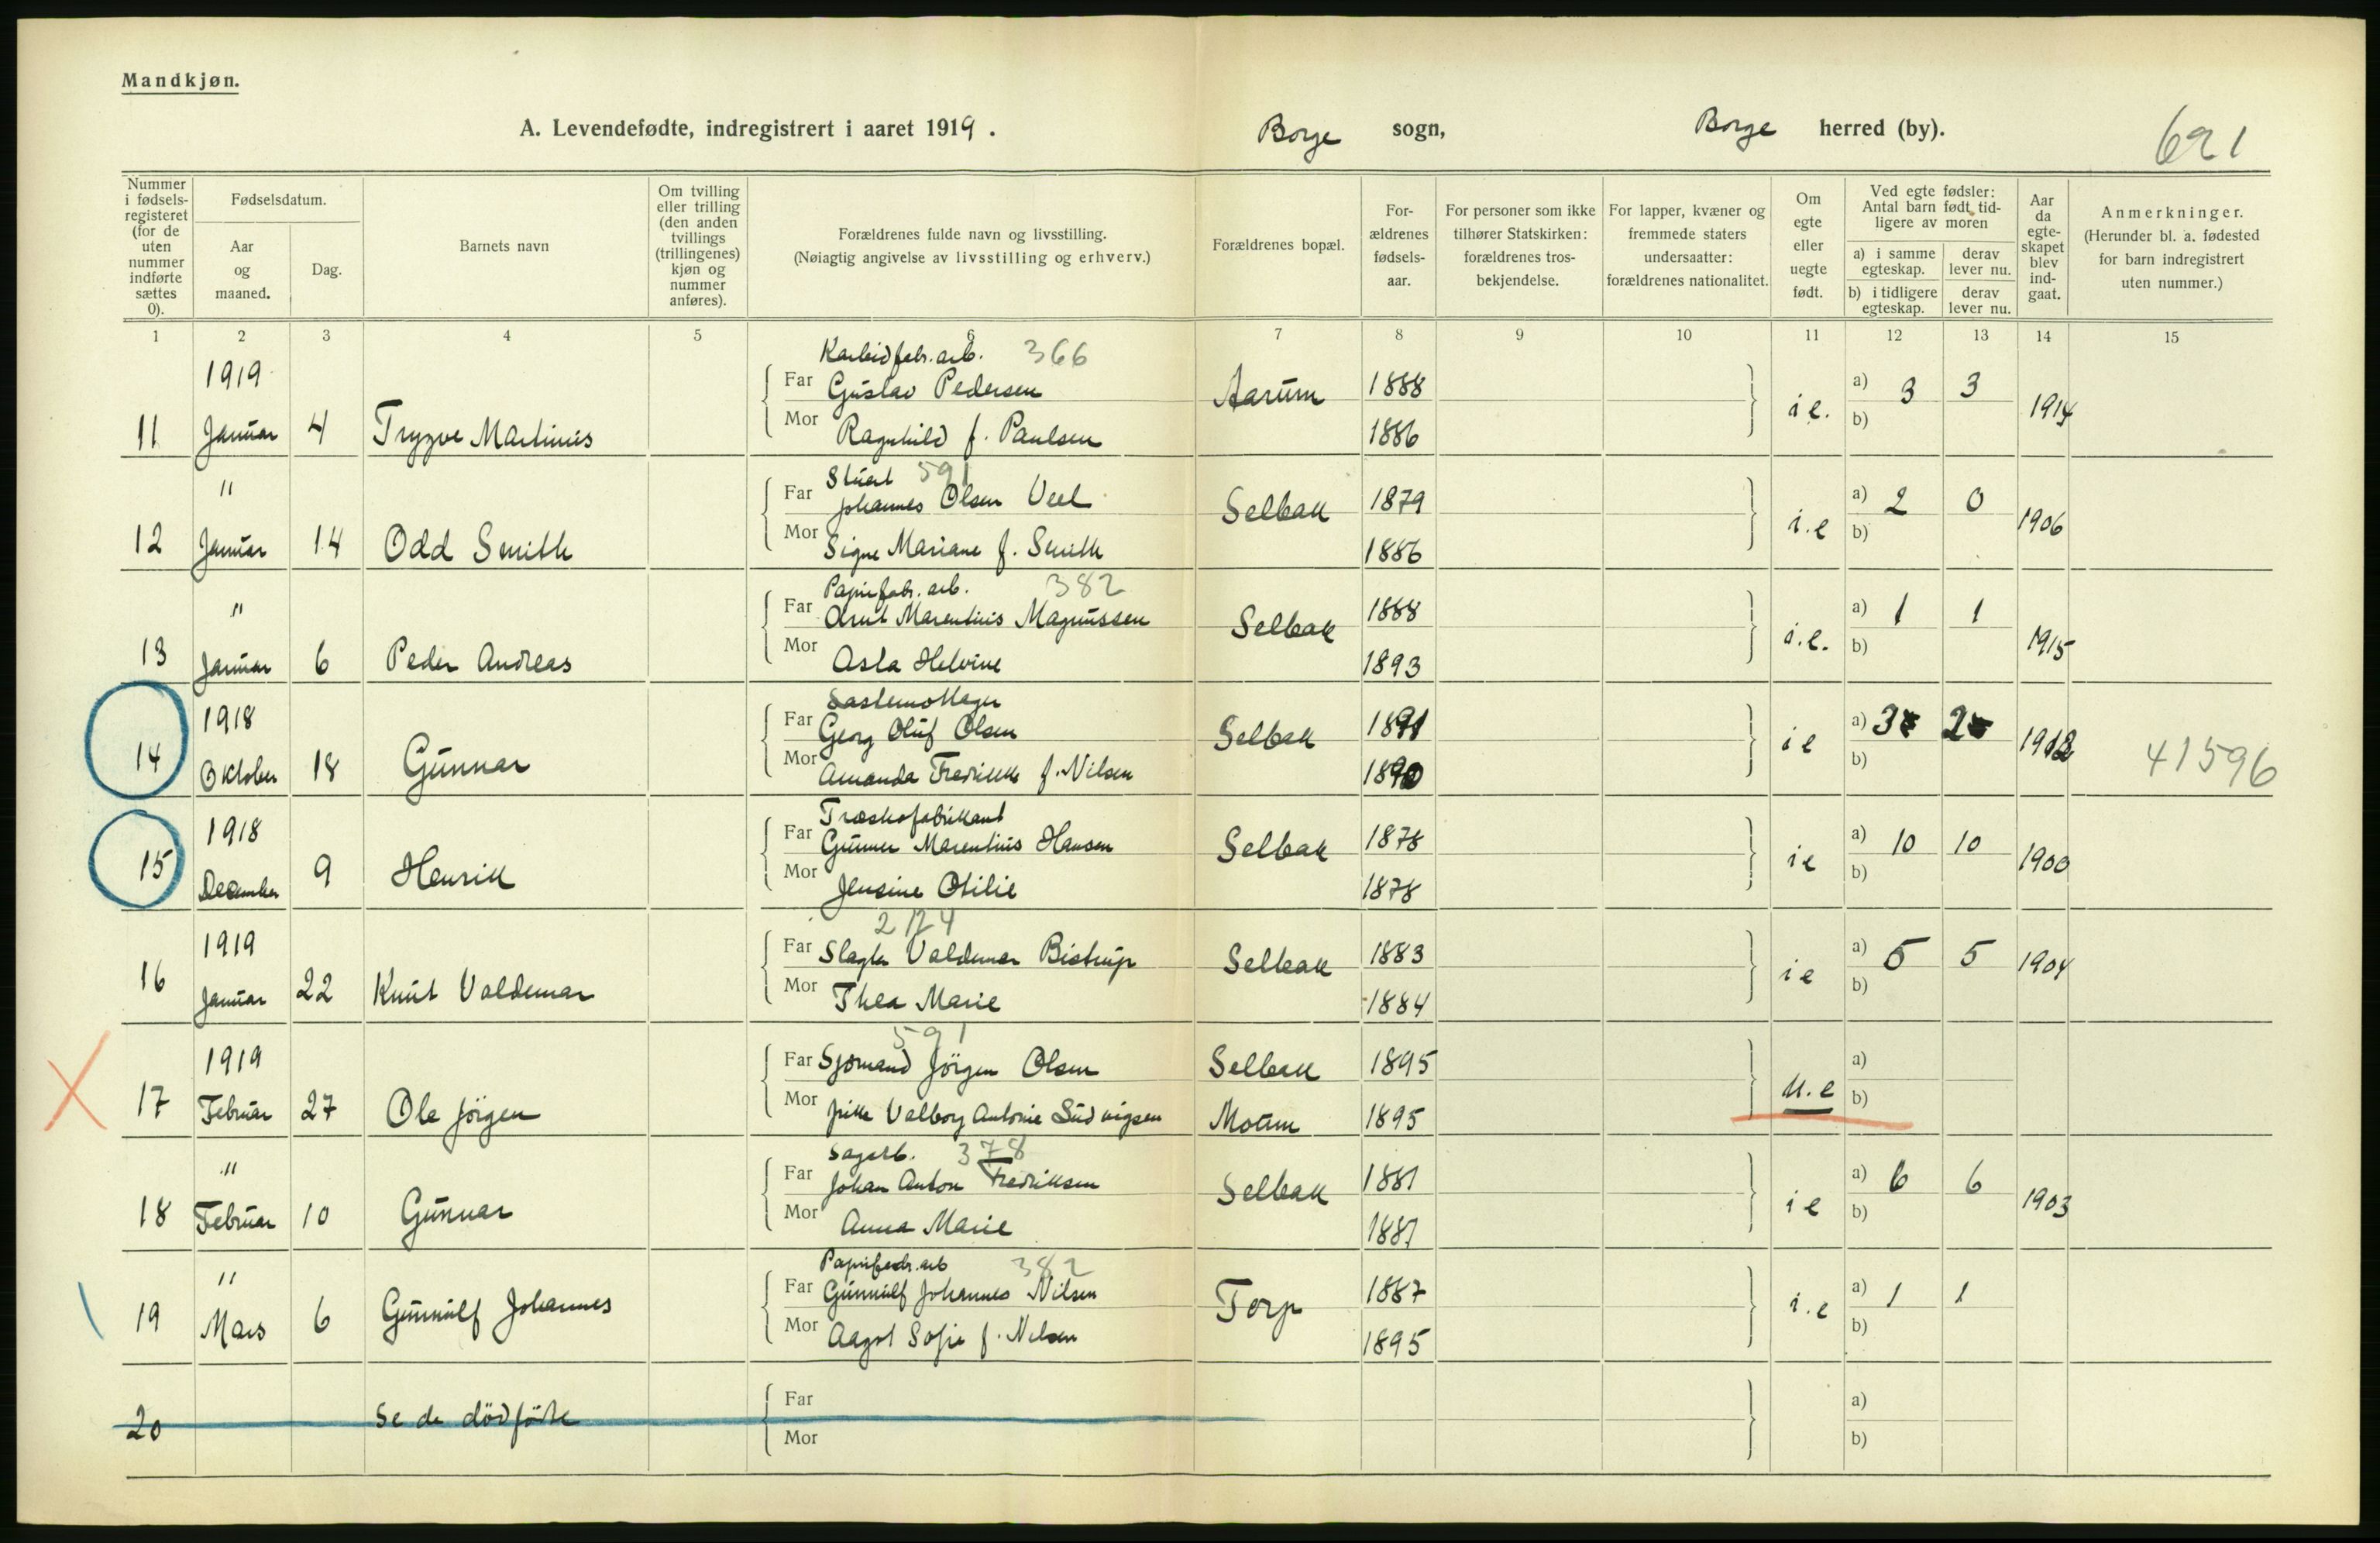 Mandkjøn.
A. Levendefødte, indregistrert i aaret 1919. Borge sogn, Borge herred (by). 621
Nummer i fødsels-registeret (for de uten nummer indførte sættes 0).
Fødselsdatum.
Aar og maaned.
Dag.
Barnets navn
Om tvilling eller trilling (den anden tvillings (trillingenes) kjøn og nummer anføres).
Forældrenes fulde navn og livsstilling. (Nøiagtig angivelse av livsstilling og erhverv.)
Forældrenes bopæl.
For-ældrenes fødsels-aar.
For personer som ikke tilhører Statskirken: forældrenes tros-bekjendelse.
For lapper, kvæner og fremmede staters undersaatter: forældrenes nationalitet.
Om egte eller uegte født.
Ved egte fødsler: Antal barn født tid-ligere av moren
a) i samme egteskap. derav lever nu.
b) i tidligere egteskap. derav lever nu.
Aar da egte-skapet blev ind-gaat.
Anmerkninger. (Herunder bl. a. fødested for barn indregistrert uten nummer.)
1 2 3 4 5 6 7 8 9 10 11 12 13 14 15
Karbidfabr. arb. 366
1919 Far Gustav Pedersen Aarum 1888 a) 3 3
11 Januar 4 Trygve Martinius Mor Ragnhild f. Paulsen 1886 i e. b) 1914
Stuert 591
" Far Johannes Olsen Veel Selbak 1879 a) 2 0
12 Januar 14 Odd Smith Mor Signe Mariane f. Smith 1886 i.e b) 1906
Papirfabr. arb. 382
" Far Arnt Marentius Magnussen Selbak 1888 a) 1 1
13 Januar 6 Peder Andreas Mor Asla Helvine 1893 i.e. b) 1915
1918 Far Georg Oluf Olsen Selbak 1891 a) 3 2
14 Oktober 18 Gunnar Mor Amanda Fredrikke f. Nilsen 1890 i e b) 1912 41596
Træskofabrikant
1918 Far Gunner Marentius Hansen Selbak 1878 a) 10 10
15 December 9 Henrik Mor Jensine Otilie 1878 i e b) 1900
2124
1919 Far Slagter Valdemar Bistrup Selbak 1883 a) 5 5
16 Januar 22 Knut Valdemar Mor Thea Marie 1884 i e b) 1904
591
1919 Far Sjømand Jörgen Olsen Selbak 1895 a)
17 Februar 27 Ole Jörgen Mor pike Valborg Antonie Ludvigsen Moum 1895 u.e b)
Sagarb. 378
" Far Johan Anton Fredriksen Selbak 1881 a) 6 6
18 Februar 10 Gunnar Mor Anna Marie 1881 i e b) 1903
Papirfabr. arb 382
" Far Gunnulf Johannes Nilsen Torp 1887 a) 1 1
19 Mars 6 Gunnulf Johannes Mor Aagot Sofie f. Nelsen 1895 i.e b)
Far a)
20 Se de dödfödte
Mor b)